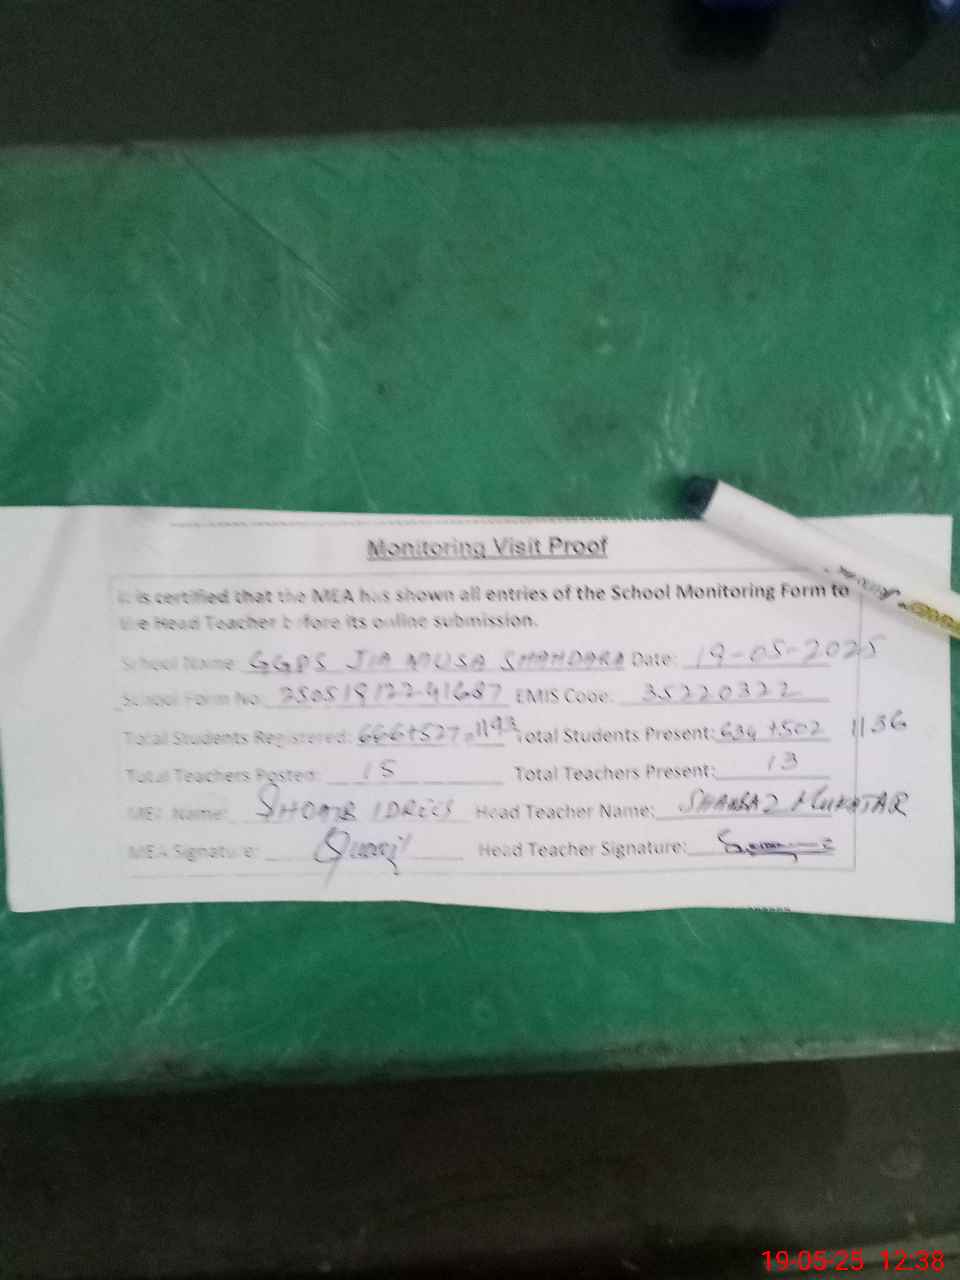 Monitoring Visit Proof
It is certified that the MEA has shown all entries of the School Monitoring Form to
the Head Teacher before its online submission.
School Name: GGPS JIA MUSA SHAHDARA Date: 19-05-2025
School Form No: EMIS Code: 35220322
Total Students Registered: 666+527=1193 Total Students Present: 634+502 1136
Total Teachers Posted: 15 Total Teachers Present: 13
MEA Name: IDREES Head Teacher Name: MUKHTAR
MEA Signature: Head Teacher Signature:
19-05-25 12:38